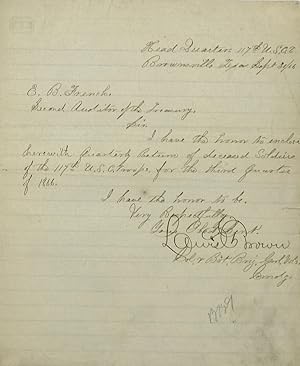 Head Quarters 117th U.S.C.T.
Brownsville Texas Sept 30/66
E. B. French.
Second Auditor of the Treasury.
Sir
I have the honor to enclose
herewith Quarterly Return of deceased Soldiers
of the 117th U.S.C. Troops, for the third Quarter
of 1866.
I have the honor to be.
Very Respectfully
Your Obt Servt.
Lewis G Brown
Col. & Bvt. Brig. Genl.
Comdg.